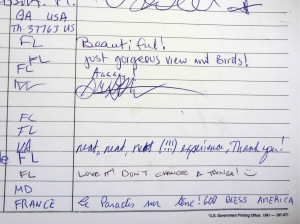 GA USA
TN 37763 US
FL Beautiful!
FL just gorgeous view and birds!
FL
FL
FL
VA neat, neat, neat (!!!) experience, Thank you!
FL
FL LOVE IT! DON'T CHANGE A THING!
MD
FRANCE Le Paradis sur terre! GOD BLESS AMERICA
*U.S. Government Printing Office: 1991 —